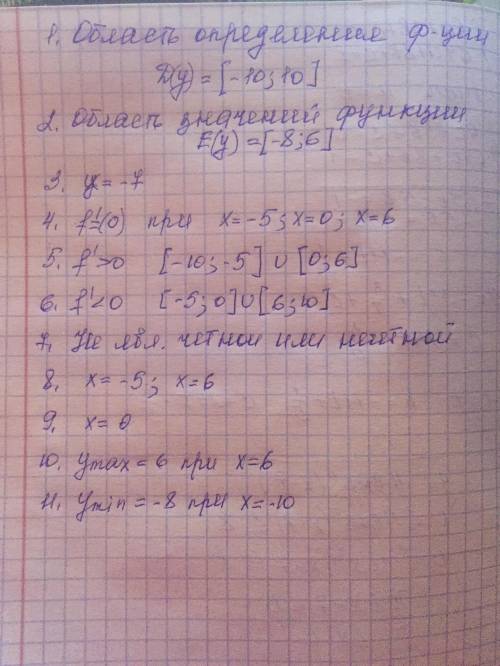 1. Область определения ф-ции
D(y) = [-10; 10]
2. Область значений функции
E(y) = [-8; 6]
3. x = -7
4. f'=(0) при x = -5; x=0; x=6
5. f'>0 [-10; -5] ∪ [0; 6]
6. f'<0 [-5; 0] ∪ [6; 10]
7. Не явл. четной или нечетной
8. x = -5; x=6
9. x = 0
10. ymax = 6 при x=6
11. ymin = -8 при x=-10